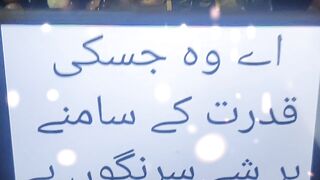 اے وہ جسکی
قدرت کے سامنے
ہر شے سرنگوں ہے